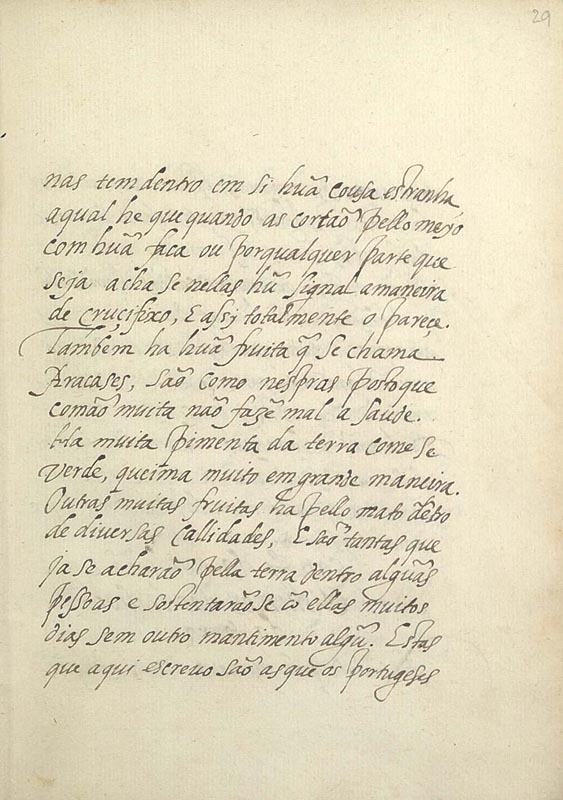 29
nas tem dentro em si huã cousa estranha
aqual he que quando as cortaõ pello meyo
com huã faca ou por qualquer parte que
seja acha se nellas hũ signal amaneira
de cruçifixo, E assy totalmente o pareçe.
Tambem ha huã fruita q̃ se chama
Aracases, saõ como nespras posto que
comaõ muita naõ fazẽ mal a saude.
Ha muita pimenta da terra come se
verde, queima muito em grande maneira.
Outras muitas fruitas ha pello mato dẽtro
de diversas callidades, E saõ tantas que
ja se acharaõ pella terra dentro alguãs
pessoas e sostentaraõse cõ ellas muitos
dias sem outro mantimento algũ. Estas
que aqui escrevo saõ as que os portugeses